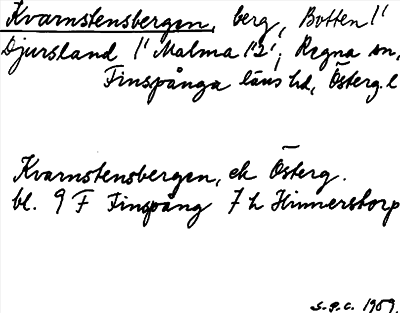 Kvarnstensbergen, berg, Botten 1/1
Djursland 1/1 Malma 1/2, Regna sn,
Finspånga läns hd, Österg. l
Kvarnstensbergen, ek Österg.
bl. 9 F Finspång 7 h Hinnerstorp
s.g.c. 1959.